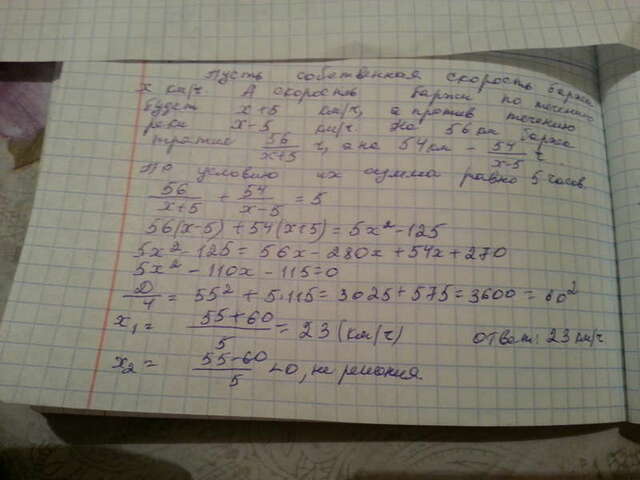 Пусть собственная скорость баржи
x км/ч. А скорость баржи по течению
будет x+5 км/ч, а против течению
реки x-5 км/ч. На 56 км баржа
тратит 56/x+5 ч, а на 54 км - 54/x-5 ч.
По условию их сумма равно 5 часов.
56/x+5 + 54/x-5 = 5
56(x-5) + 54(x+5) = 5x² - 125
5x² - 125 = 56x - 280x + 54x + 270
5x² - 110x - 115 = 0
D/4 = 55² + 5·115 = 3025 + 575 = 3600 = 60²
x₁ = 55+60/5 = 23 (км/ч) ответ: 23 км/ч
x₂ = 55-60/5 <0, не решения